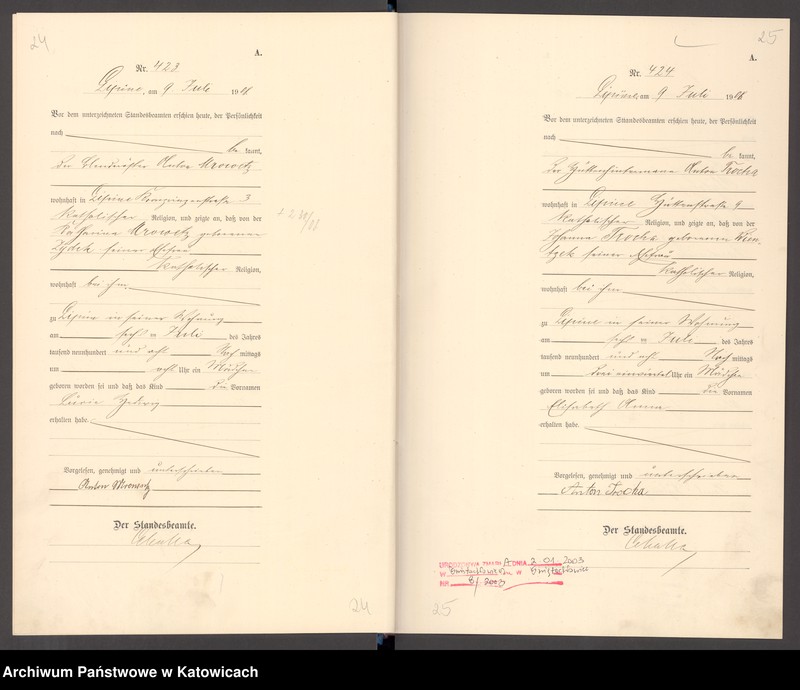 24
A.
Nr. 423
Lipine, am 9 Juli 1908
Vor dem unterzeichneten Standesbeamten erschien heute, der Persönlichkeit
nach
be kannt,
der Anton
wohnhaft in Lipine 3
katholischer Religion, und zeigte an, daß von der
Katharina geborenen
Zydek seiner Ehefrau
katholischer Religion,
wohnhaft bei ihm,
zu Lipine in seiner Wohnung
am sechs Juli des Jahres
tausend neunhundert und acht Nach mittags
um acht Uhr ein Mädchen
geboren worden sei und daß das Kind die Vornamen
Hedwig
erhalten habe.
Vorgelesen, genehmigt und unterschrieben
Anton
Der Standesbeamte.
24
25
A.
Nr. 424
Lipine, am 9 Juli 1908
Vor dem unterzeichneten Standesbeamten erschien heute, der Persönlichkeit
nach
be kannt,
der Anton Trocha
wohnhaft in Lipine Hüttenstraße 9
katholischer Religion, und zeigte an, daß von der
Johanna Trocha geborenen
seiner Ehefrau
katholischer Religion,
wohnhaft bei ihm
zu Lipine in seiner Wohnung
am sechs Juli des Jahres
tausend neunhundert und acht Nach mittags
um Uhr ein Mädchen
geboren worden sei und daß das Kind die Vornamen
Elisabeth Anna
erhalten habe.
Vorgelesen, genehmigt und unterschrieben
Anton Trocha
Der Standesbeamte.
DNIA 2 01 2003
W W Świętochłowice
NR 8/2003
25
Archiwum Państwowe w Katowicach